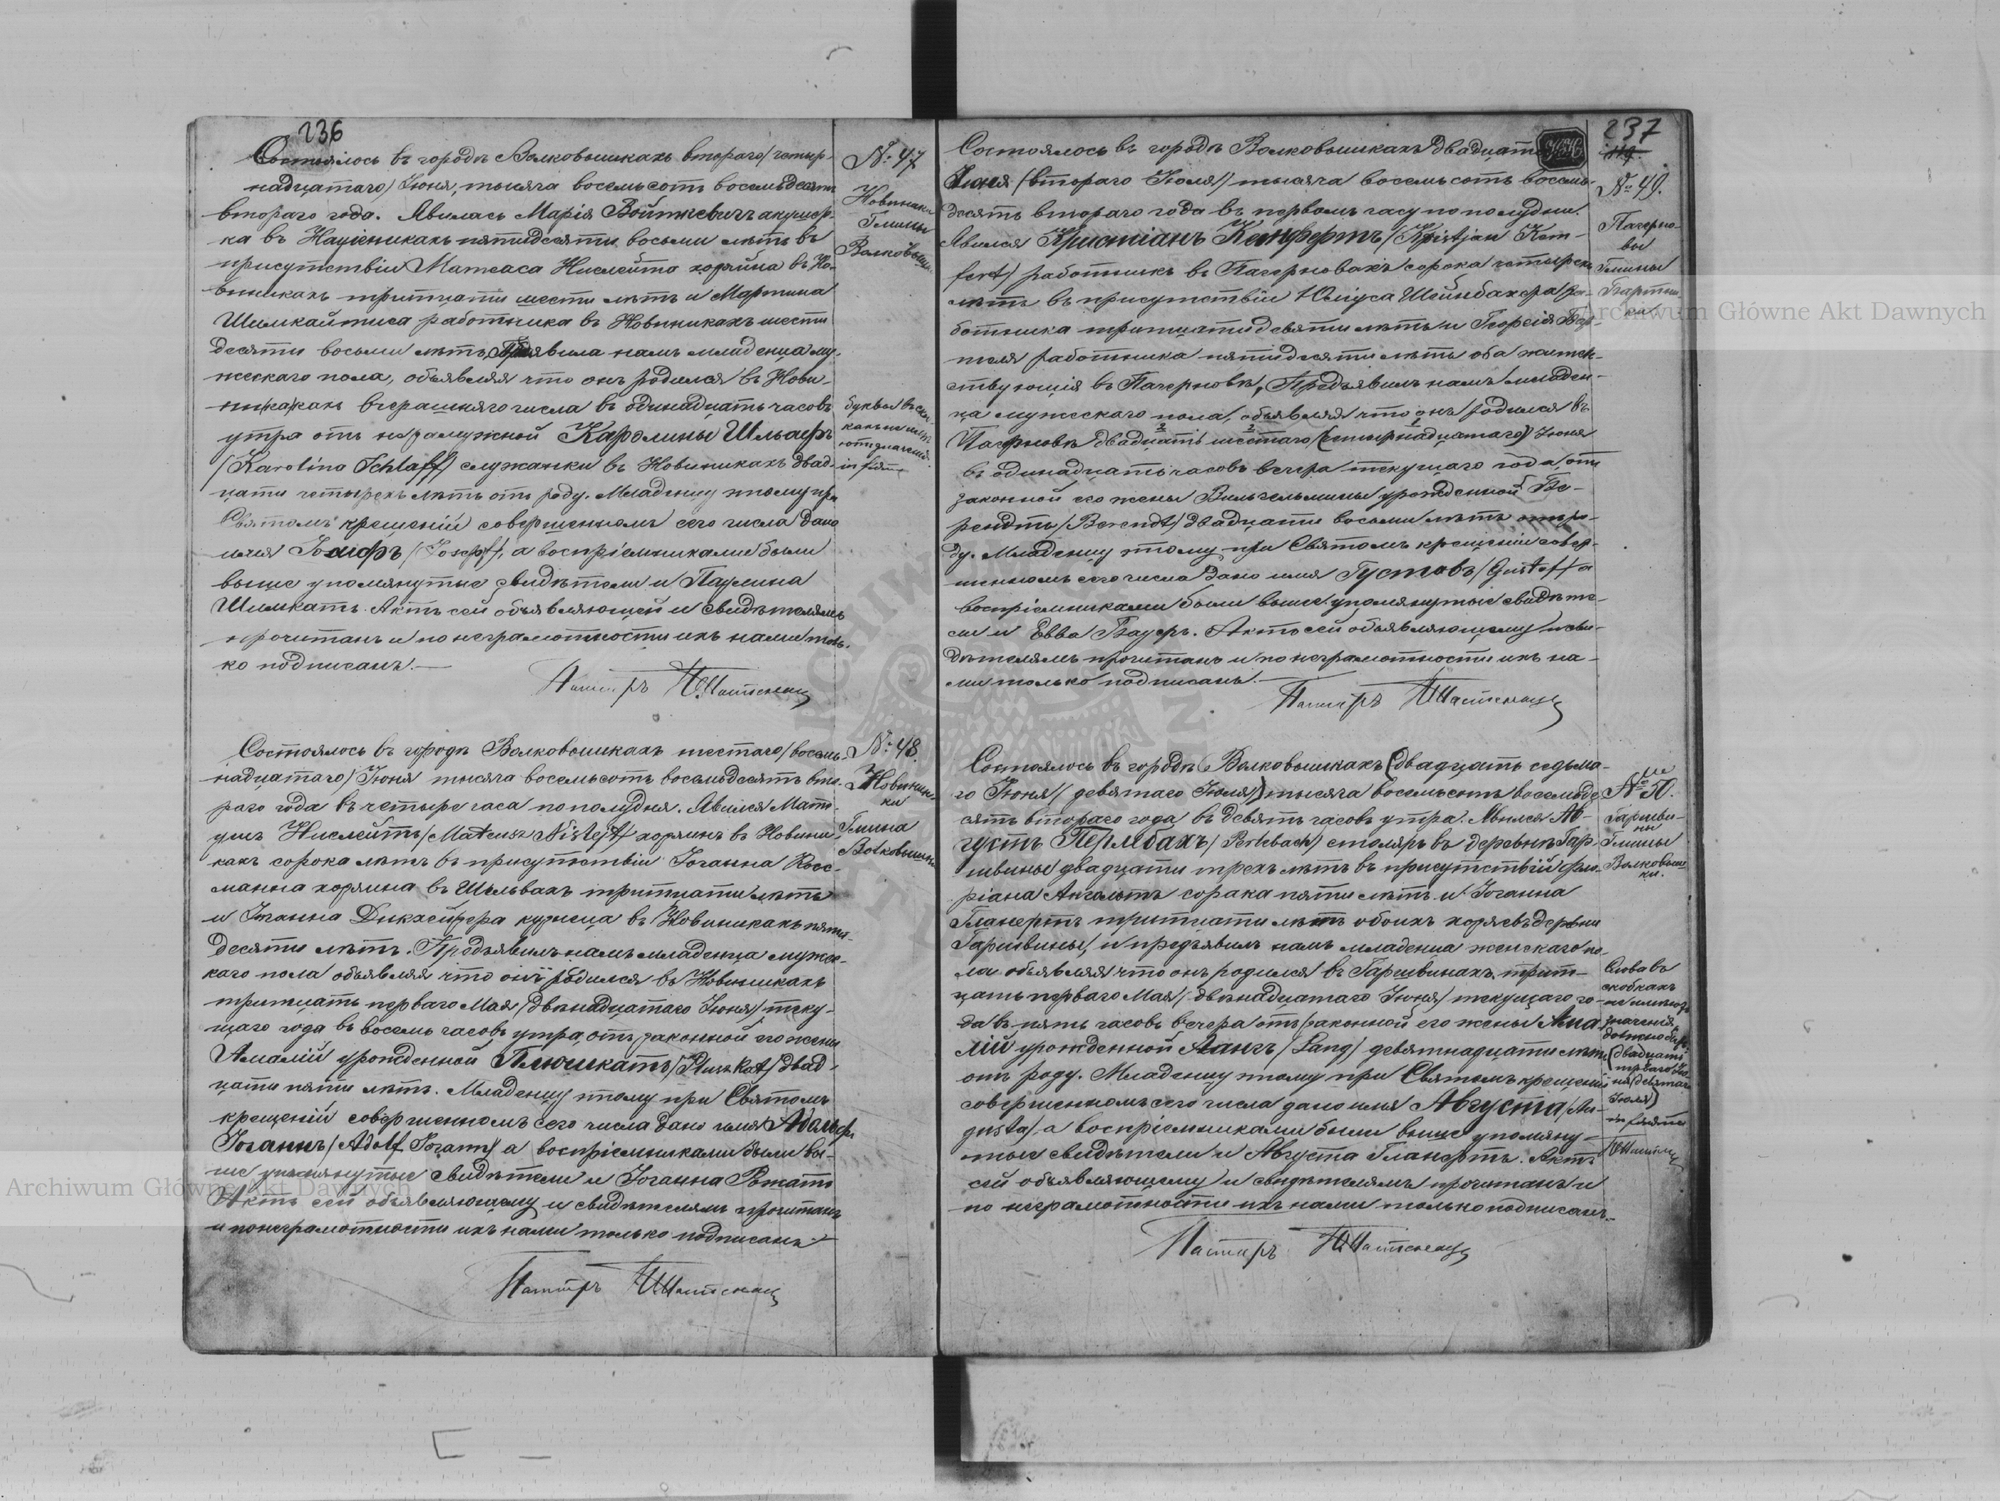 236
Состоялось въ городѣ Волковышкахъ втораго/четыр-
надцатаго/ Іюня, тысяча восемьсотъ восемьдесятъ
втораго года. Явилась Марія Войткевичъ акушер-
ка въ пятидесяти восьми лѣтъ въ
присутствіи Матеаса Нислейта хозяина въ Но-
виникахъ тритцати шести лѣтъ и Мартина
Шимкайтиса работника въ Новиникахъ шести
десяти восьми лѣтъ, явила намъ младенца му-
жескаго пола, объявляя что онъ родился въ Нови-
ни/ка/кахъ вчерашняго числа въ одинадцать часовъ
утра отъ незамужной Каролины Шлафъ
/Karolina Schlaff/ служанки въ Новиникахъ двад-
цати четырехъ лѣтъ отъ роду. Младенцу тому при
Святомъ крещеніи совершенномъ сего числа дано
имя Іосифъ /Joseph/, а воспріемниками были
выше упомянутые свидѣтели и Паулина
Шимкатъ. Актъ сей объявляющей и свидѣтелямъ
прочитанъ и по неграмотности ихъ нами толь-
ко подписанъ.—
Пасторъ
№ 47
Новиники
Гмины
Волковышки
буквы въ скоб-
кахъ не имѣ-
ютъ значенія.
Состоялось въ городѣ Волковышкахъ шестаго/восем-
надцатаго/ Іюня тысяча восемьсотъ восемьдесятъ вто-
раго года въ четыре часа по полудня. Явился Мате-
ушъ Нислейтъ /Mateusz Nislejt/ хозяинъ въ Новини-
кахъ сорока лѣтъ въ присутствіи Іоганна Косс-
манна хозяина въ Шильвахъ тритцати лѣтъ
и Іоганна Дикхейзера кузнеца въ Новиникахъ пяти-
десяти лѣтъ. Предъявилъ намъ младенца мужес-
каго пола объявляя что онъ родился въ Новиникахъ
тритцать перваго Мая /двѣнадцатаго Іюня/ теку-
щаго года въ восемь часовъ утра, отъ законной его жены
Амаліи урожденной Плюшкатъ /Pluszkat/ двад-
цати пяти лѣтъ. Младенцу тому при Святомъ
крещеніи совершенномъ сего числа дано имя Адольфъ
Іоганнъ /Adolf Johann/ а воспріемниками были вы-
ше упомянутые свидѣтели и Іоганна
Актъ сей объявляющему и свидѣтелямъ прочитанъ
и по неграмотности ихъ нами только подписанъ.—
Пасторъ
№ 48.
Новини-
ки
Гмина
Волковышки
237
Состоялось въ городѣ Волковышкахъ двадцатаго
Іюня /втораго Іюля/ тысяча восемьсотъ восемь-
десятъ втораго года въ первомъ часу по полудни.
Явился Кристіанъ Кемфертъ /Kristjan Kem-
fert/ работникъ въ Пагерновахъ сорока четырехъ
лѣтъ въ присутствіи Юліуса Шейнбахера ра-
ботника тритцати девяти лѣтъ и Георгія Бер-
работника пятидесяти лѣтъ оба житель-
ствующія въ Пагерновѣ, Предъявилъ намъ младен-
ца мужескаго пола, объявляя что онъ родился въ
Пагерновѣ двадцать шестаго /четырнадцатаго/ Іюня
въ одинадцать часовъ вечера текущаго года, отъ
законной его жены Вильгельмины урожденной Бе-
рендтъ /Berendt/ двадцати восьми лѣтъ отъ ро-
ду. Младенцу тому при Святомъ крещеніи совер-
шенномъ сего числа дано имя Густавъ /Gustaf/ а
воспріемниками были выше упомянутые свидѣте-
ли и Евва Бауеръ. Актъ сей объявляющему и сви-
дѣтелямъ прочитанъ и по неграмотности ихъ на-
ми только подписанъ.—
Пасторъ
№ 49.
Пагерно-
вы
Гмины
Бартни-
ки
Состоялось въ городѣ Волковышкахъ (двадцать седьма-
го Іюня/ девятаго Іюля) тысяча восемьсотъ восемьде-
сятъ втораго года въ девять часовъ утра. Явился Ав-
густъ Перлбахъ /Perlebach/ столяръ въ деревнѣ Гар-
швины двадцати трехъ лѣтъ въ присутствіи Фло-
ріана Ангольтъ сорока пяти лѣтъ и Іоганна
Гланертъ тритцати лѣтъ обоихъ хозяевъ деревни
Гаршвины, и предъявилъ намъ младенца женскаго по-
ла объявляя что онъ родился въ Гаршвинахъ трит-
цать перваго Мая /двѣнадцатаго Іюня/ текущаго го-
да въ пять часовъ вечера отъ законной его жены Ама
ліи урожденной Лангъ /Lang/ девятнадцати лѣтъ
отъ роду. Младенцу тому при Святомъ крещеніи
совершенномъ сего числа дано имя Августа /Au-
gusta/ а воспріемниками были выше упомяну-
тые свидѣтели и Августа Гланертъ. Актъ
сей объявляющему и свидѣтелямъ прочитанъ и
по неграмотности ихъ нами только подписанъ.
Пасторъ
№ 50.
Гаршви-
ны
Гмины
Волковыш-
ки.
Слова въ
скобкахъ
не имѣютъ
значенія
должно быть
(двадцать
перваго Ію-
ня/девятаго
Іюля)
Archiwum Główne Akt Dawnych
Archiwum Główne Akt Dawnych